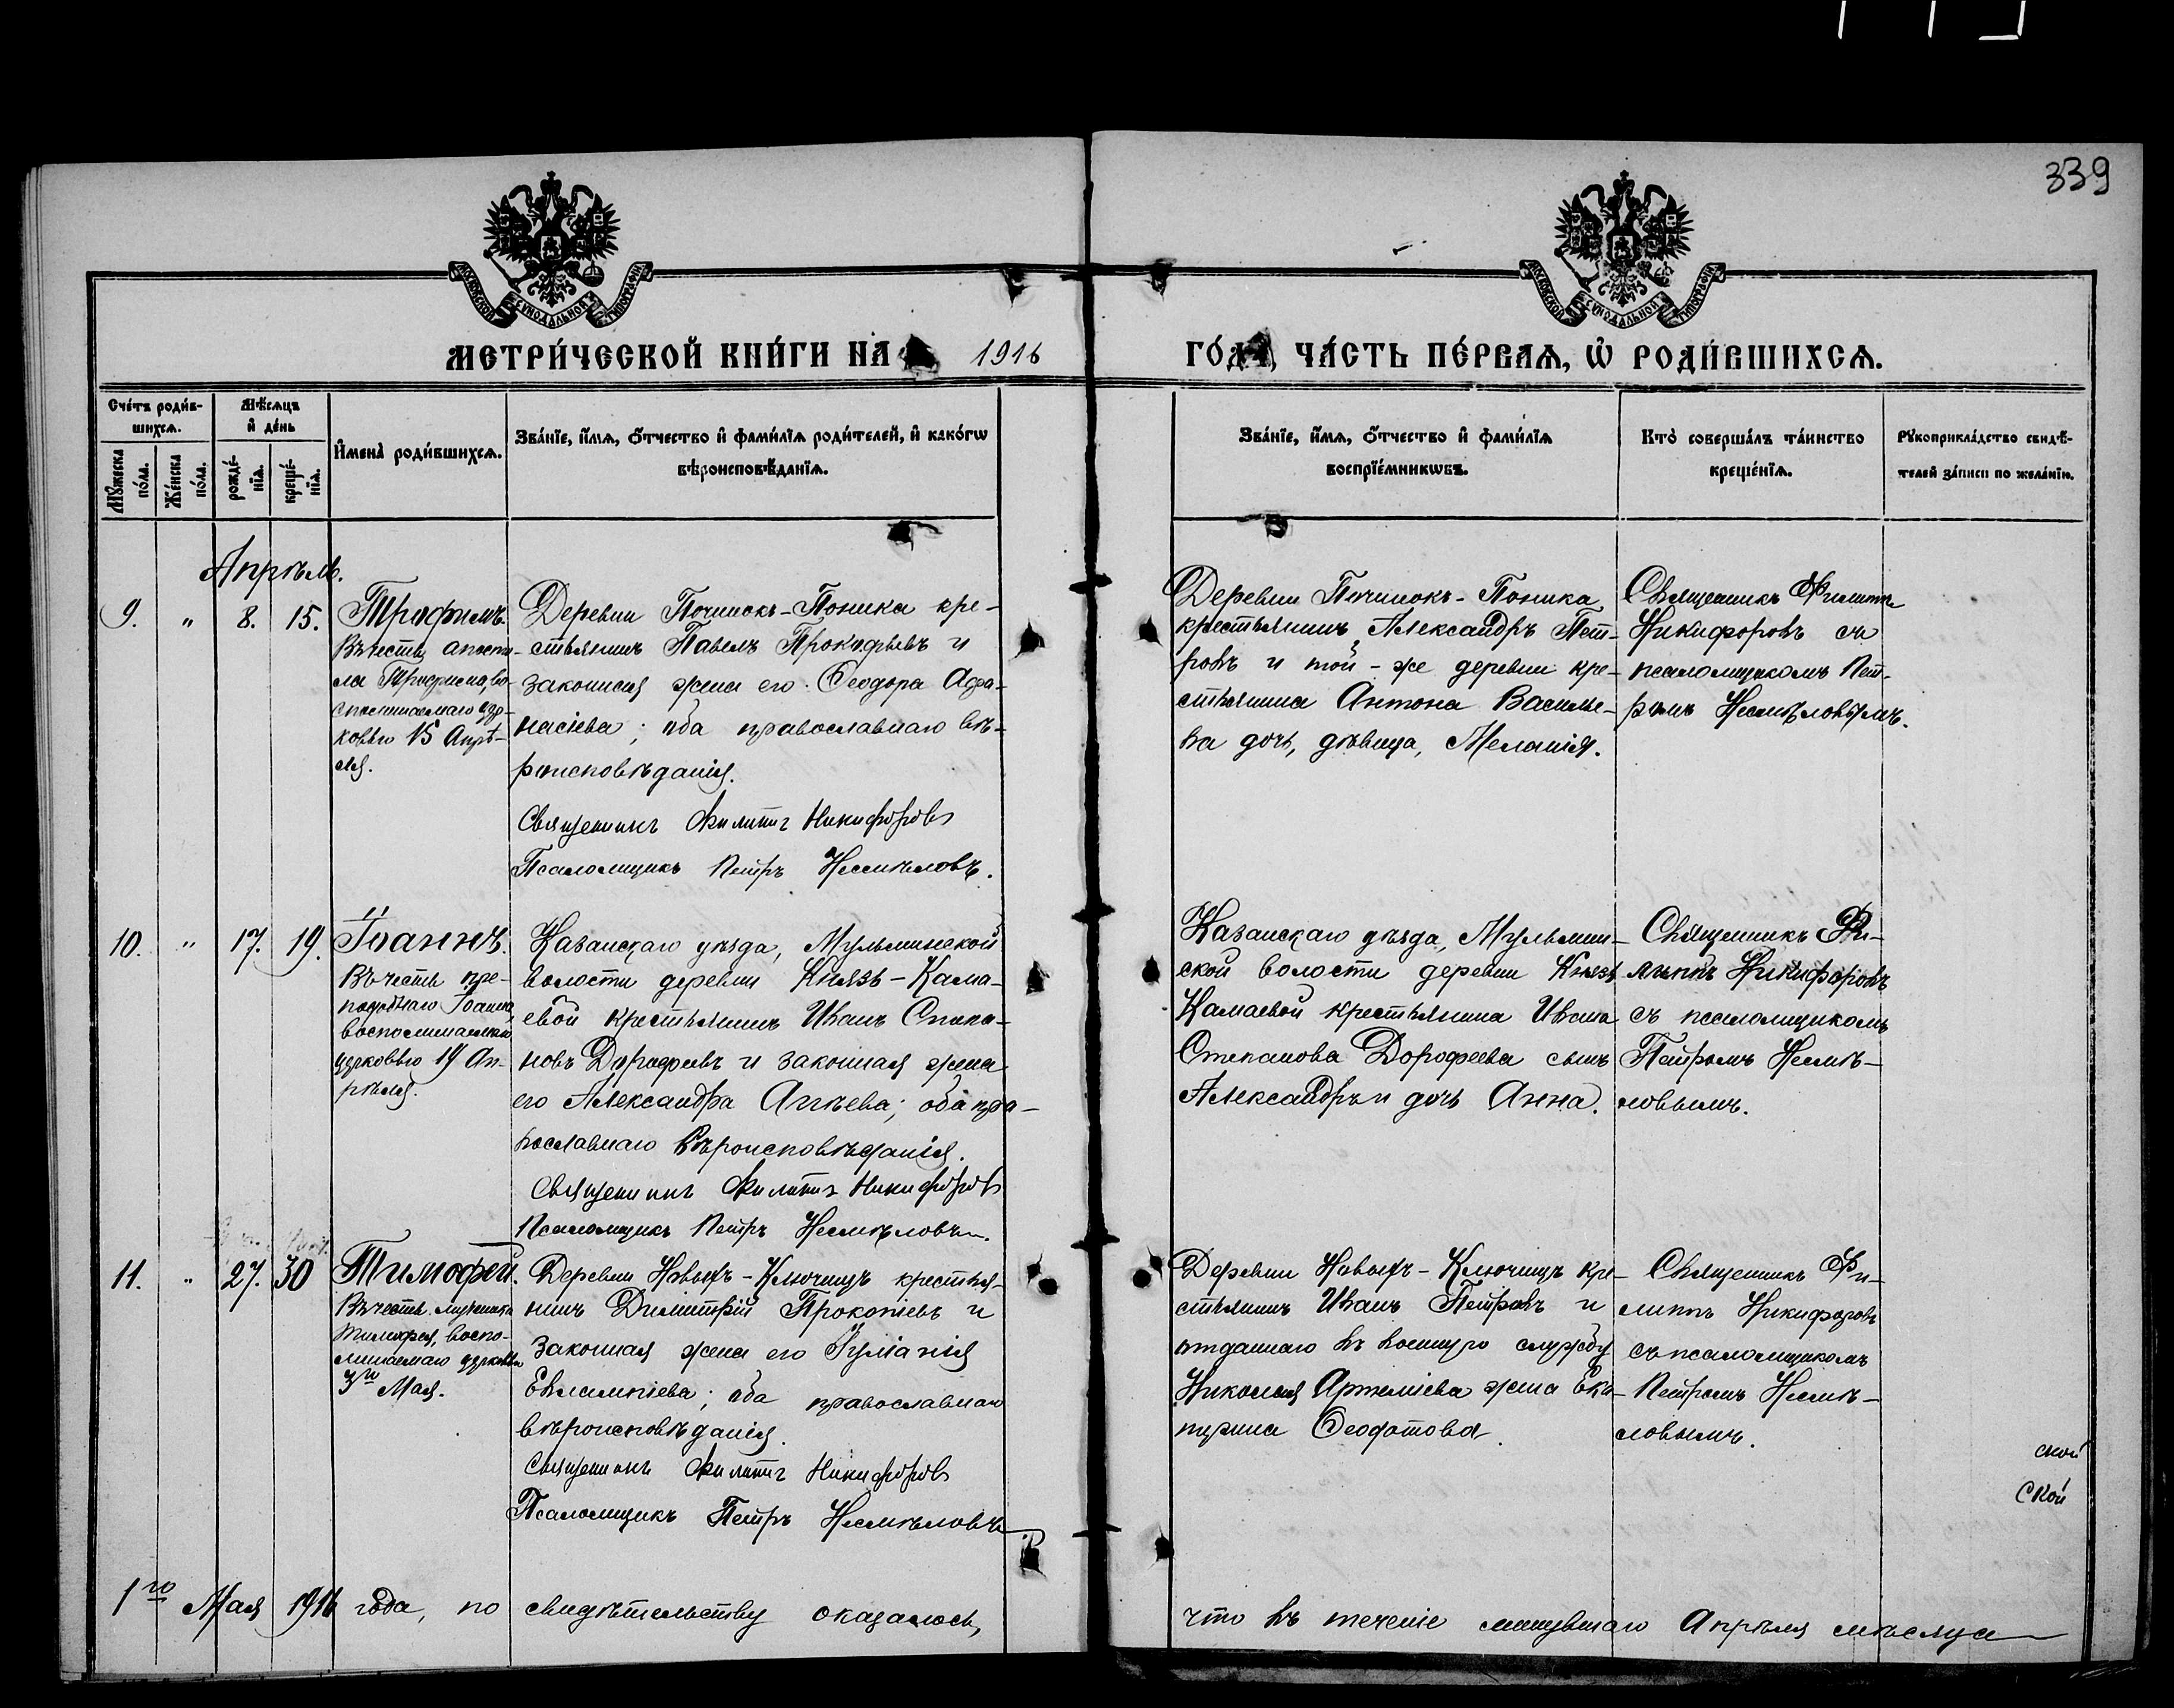 339
МОСКОВСКОЙ СѴНОДАЛЬНОЙ ТИПОГРАФІИ
МОСКОВСКОЙ СѴНОДАЛЬНОЙ ТИПОГРАФІИ
МЕТРИ́ЧЕСКОЙ КНИ́ГИ НА 1916
ГО́ДА, ЧА́СТЬ ПЕ́РВАѦ, Ѡ РОДИ́ВШИХСѦ.
Сче́тъ роди́в-
шихсѧ.
Мꙋ́жеска по́ла.
Же́нска по́ла.
Мѣ́сѧцъ
и҆ де́нь
рожде́-
нїѧ.
креще́-
нїѧ.
И҆мена̀ роди́вшихсѧ.
Зва́нїе, и҆́мѧ, ѻ҆́тчество и҆ фами́лїѧ роди́телей, и҆ како́гѡ
вѣроисповѣ́данїѧ.
Зва́нїе, и҆́мѧ, ѻ҆́тчество и҆ фами́лїѧ
воспрїе́мникѡвъ.
Кто̀ соверша́лъ та́инство
креще́нїѧ.
Рꙋкоприкла́дство свидѣ́-
телей за́писи по жела́нїю.
Апрѣль.
9. " 8. 15.
Трофимъ.
Въ честь апосто-
ла Трофима, во-
споминаемаго цер-
ковью 15 Апрѣ-
ля.
Деревни Починокъ-Поника кре-
стьянинъ Павелъ Прокофьевъ и
законная жена его Ѳеодора Афа-
насіева; оба православнаго вѣ-
роисповѣданія.
Священникъ Филиппъ Никифоровъ
Псаломщикъ Петръ Несмѣловъ.
Деревни Починокъ-Поника
крестьянинъ Александръ Пет-
ровъ и той-же деревни кре-
стьянина Антона Василье-
ва дочь, дѣвица, Меланія.
Священникъ Филиппъ
Никифоровъ съ
псаломщикомъ Пет-
ромъ Несмѣловымъ.
10. " 17. 19.
Іоаннъ.
Въ честь пре-
подобнаго Іоанна,
воспоминаемаго
церковью 19 Ап-
рѣля.
Казанскаго уѣзда, Мульминской
волости деревни Князь-Кама-
евой крестьянинъ Иванъ Степа-
новъ Дорофеевъ и законная жена
его Александра Агѣева; оба пра-
вославнаго вѣроисповѣданія.
Священникъ Филиппъ Никифоровъ
Псаломщикъ Петръ Несмѣловъ.
Казанскаго уѣзда, Мульмин-
ской волости деревни Князь
Камаевой крестьянина Ивана
Степанова Дорофеева сынъ
Александръ и дочь Анна.
Священникъ Фи-
липпъ Никифоровъ
съ псаломщикомъ
Петромъ Несмѣ-
ловымъ.
11. " 27. 30
Тимофей.
Въ честь мученика
Тимофея, воспо-
минаемаго церковью
3го Мая.
Деревни Новыхъ-Ключищъ крестья-
нинъ Димитрій Прокопіевъ и
законная жена его Іуліанія
Евлампіева; оба православнаго
вѣроисповѣданія.
Священникъ Филиппъ Никифоровъ
Псаломщикъ Петръ Несмѣловъ.
Деревни Новыхъ-Ключищъ кре-
стьянинъ Иванъ Петровъ и
отданнаго въ военную службу
Николая Артеміева жена Ека-
терина Ѳеофотова.
Священникъ Фи-
липпъ Никифоровъ
съ псаломщикомъ
Петромъ Несмѣ-
ловымъ.
ской
ской
1го Мая 1916 года, по свидѣтельству оказалось,
что въ теченіе минувшаго Апрѣля мѣсяца